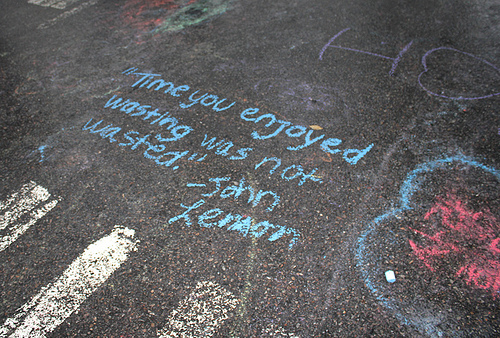 "Time you enjoyed
wasting was not
wasted."
-John
Lennon